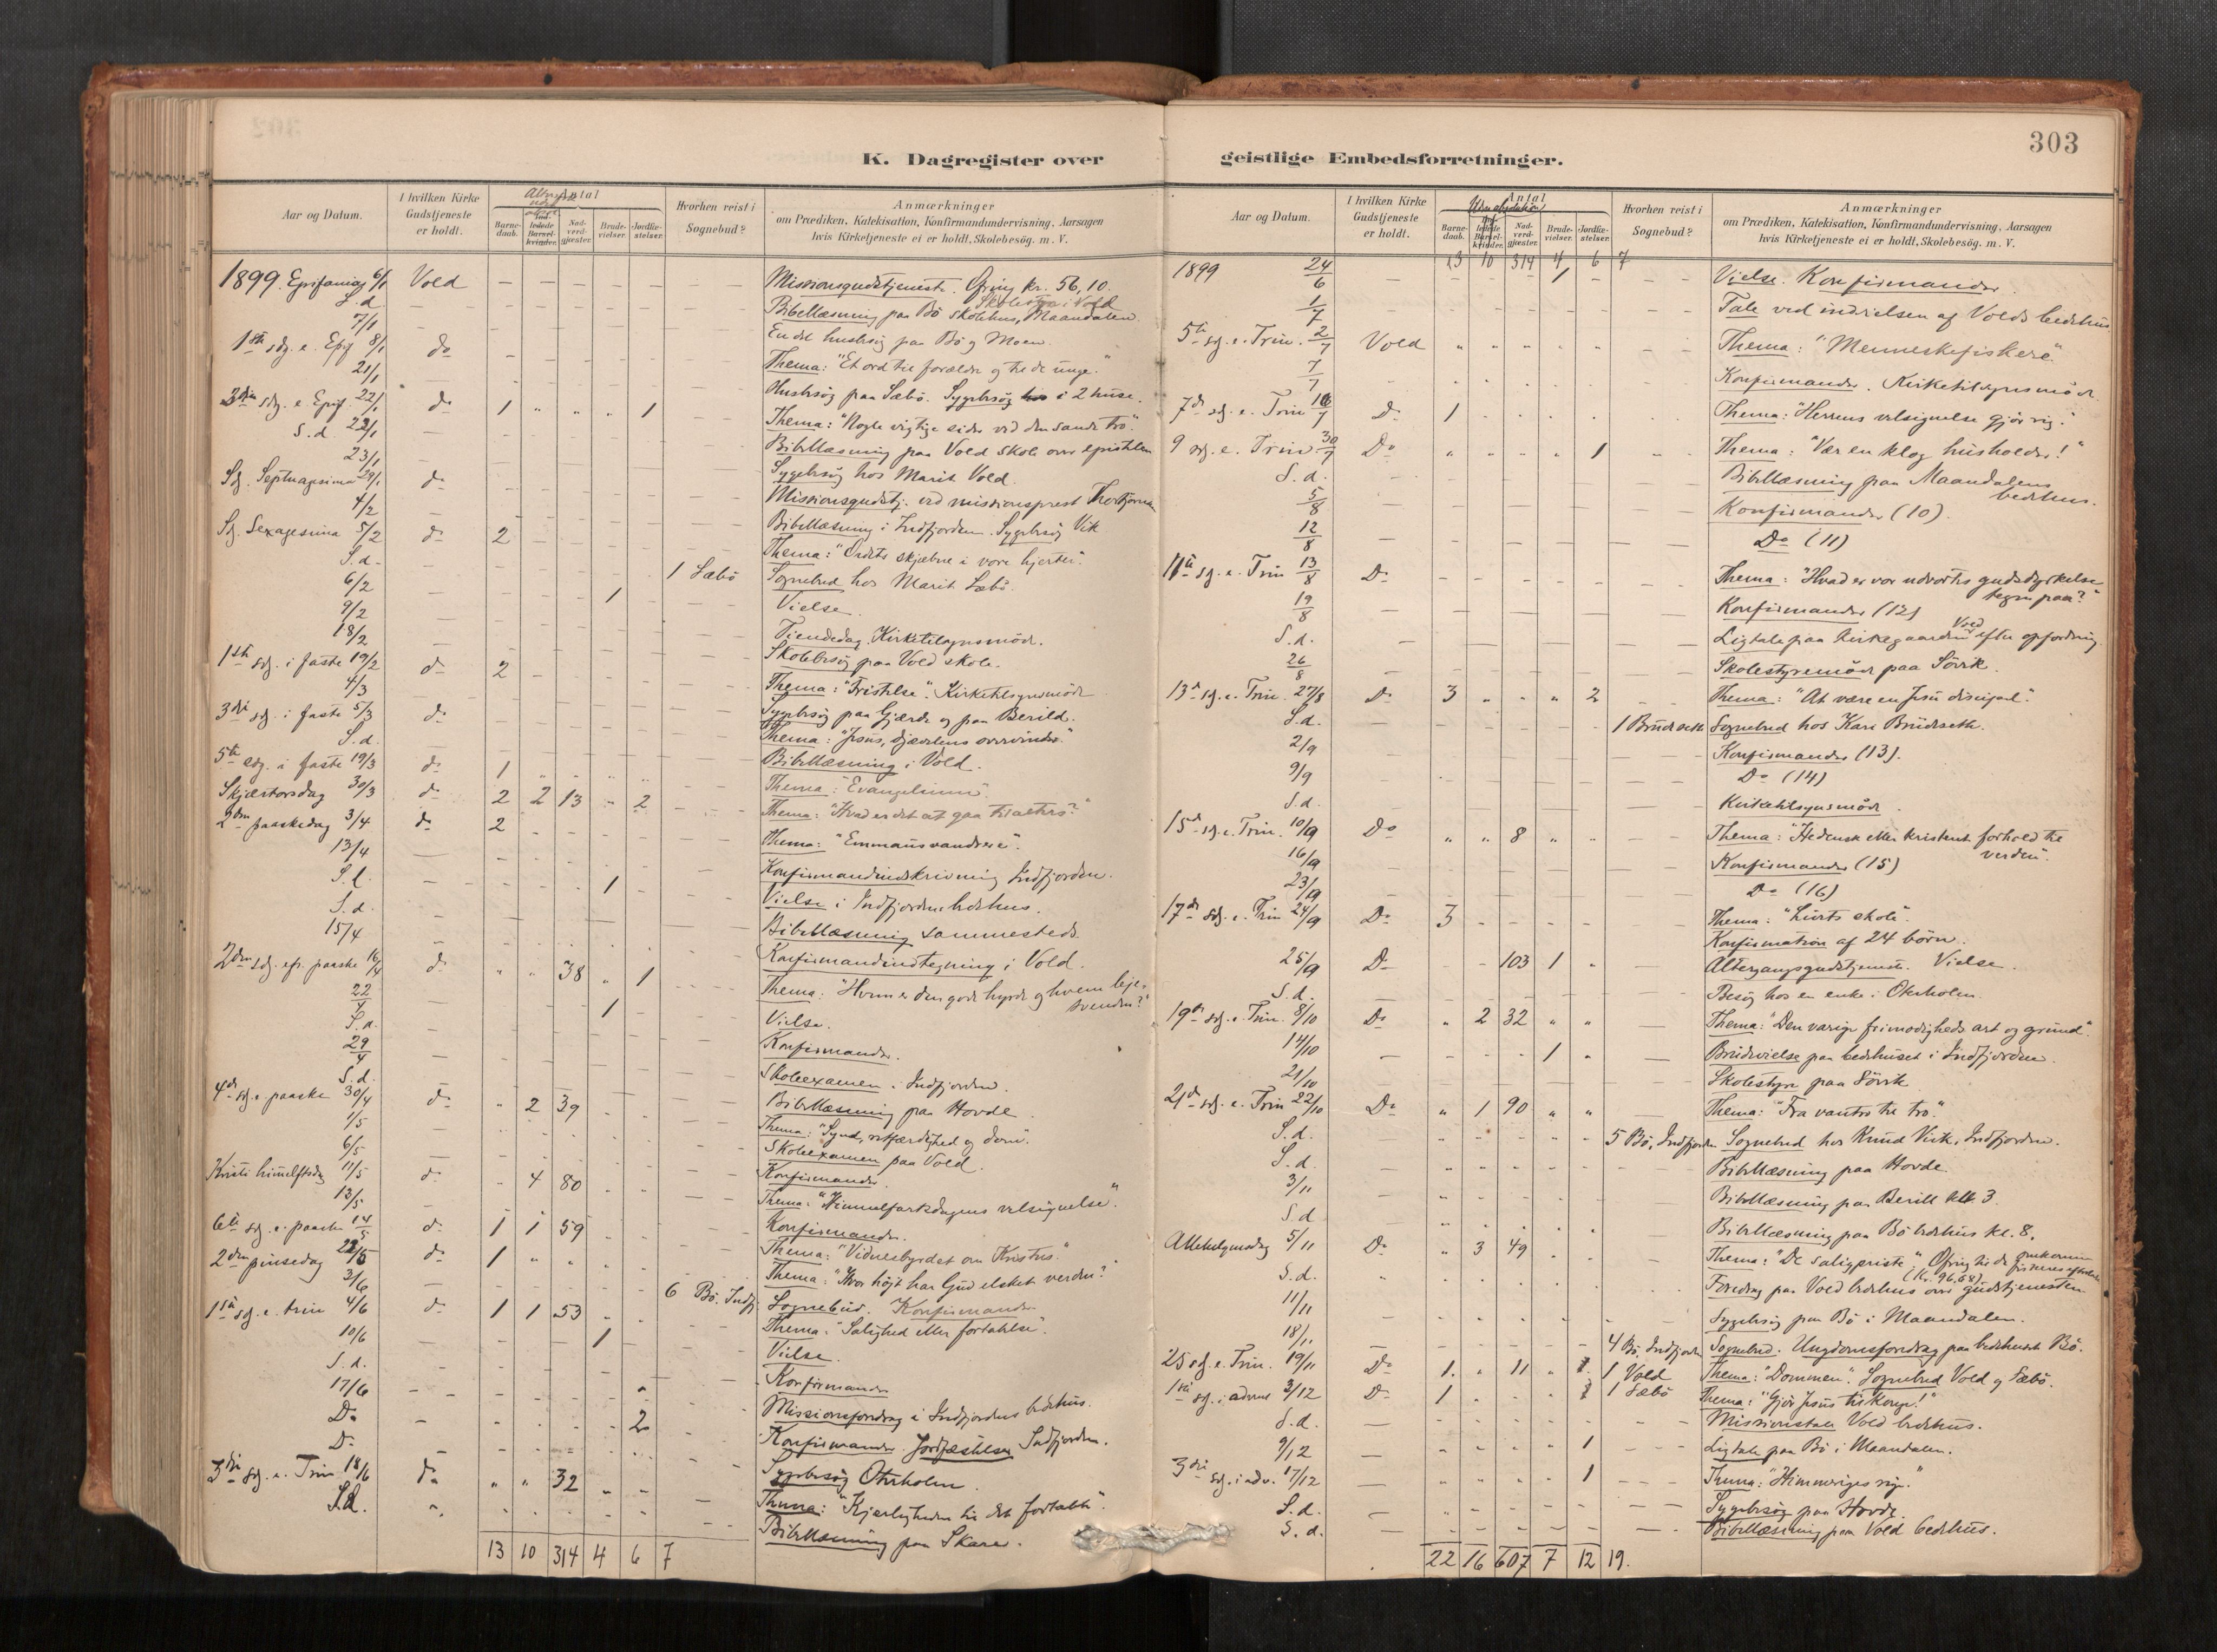 303
K. Dagregister over
geistlige Embedsforretninger.
Aar og Datum.
I hvilken Kirke
Gudstjeneste
er holdt.
Antal
Barne-
daab.
Nad-
verd-
gjæster.
Brude-
vielser.
Jordfæ-
stelser.
Hvorhen reist i
Sognebud?
Anmærkninger
om Prædiken, Katekisation, Konfirmandundervisning, Aarsagen
hvis Kirketjeneste ei er holdt, Skolebesög. m. V.
1899. Epifanias 6/1 Vold — — — — — Missionsgudstjeneste. Ofring kr. 56,10.
S. d. Bibellæsning paa Bö skolehus, Maandalen.
7/1 En del husbesøg paa Bö og Moen.
1ste sdg. e. Epif. 8/1 do Thema: "Et ord til forældre og til de unge."
21/1 Husbesøg paa Sæbö. Sygebesøg i 2 huse.
3die sdg. e. Epif. 22/1 do 1 " " " 1 Thema: "Nogle vigtige sider ved den sande tro."
S. d. 22/1 Bibellæsning paa Vold skole over epistelen
23/1 Sygebesøg hos Marit Vold.
Sdg. Septuagesima 29/1 do Missionsgudstj. ved missionsprest
4/2 Bibellæsning i Indfjorden. Sygebesøg Vik
Sdg. Sexagesima 5/2 do 2 Thema: "Ordets skjæbne i vore hjerter."
S. d. 1 Sæbö Sognebud hos Marit Sæbö.
6/2 1 Vielse.
9/2 Tiendedag. Kirketilsynsmöde.
18/2 Skolebesøg paa Vold skole.
1ste sdg. i faste 19/2 do 2 Thema: "Fristelse". Kirketilsynsmöde
4/3 Sygebesøg paa Gjærde og paa Berild.
3die sdg. i faste 5/3 do Thema: "Jesus, djævelens overvinder."
S. d. Bibellæsning i Vold.
5te sdg. i faste 19/3 do 1 Thema: "Evangelium".
Skjærtorsdag 30/3 do 2 2 13 " 2 Thema: "Hvad er det at gaa til alters?"
2den paaskedag 3/4 do 2 Thema: "Emmausvandrere".
13/4 Konfirmandindskrivning Indfjorden.
S. d. 1 Vielse i Indfjordens bedehus.
S. d. Bibellæsning sammesteds.
15/4 Konfirmandindtegning i Vold.
2den sdg. eft. paaske 16/4 do " " 38 " 1 Thema: "Hvem er den gode hyrde og hvem leje-
svenden?"
22/4 1 Vielse.
S. d. Konfirmander.
29/4 Skoleexamen i Indfjorden.
S. d. Bibellæsning paa Hovde.
4de sdg. e. paaske 30/4 do " 2 39 Thema: "Synd, retfærdighed og dom".
1/5 Skoleexamen paa Vold.
6/5 Konfirmander.
Kristi himmelftsdag 11/5 do 4 80 Thema: "Himmelfartsdagens velsignelse".
13/5 Konfirmander.
6te sdg. e. paaske 14/5 do 1 1 59 Thema: "Vidnesbyrdet om Kristus."
2den pinsedag 22/5 do 1 Thema: "Hvor höjt har Gud elsket verden?"
3/6 6 Bö. Indfj. Sognebud. Konfirmander
1ste sdg. e. trin 4/6 do 1 1 53 Thema: "Salighed eller fortabelse".
10/6 1 Vielse.
S. d. Konfirmander
17/6 Missionsforedrag i Indfjordens bedehus.
Do 2 Konfirmander. Jordfæstelse Indfjorden.
Do Sygebesøg Otterholm.
3die sdg. e. Trin 18/6 do " " 32 Thema: "Kjærligheden til det fortabte".
S. d. Bibellæsning paa Skare.
13 10 314 4 6 7
Aar og Datum.
I hvilken Kirke
Gudstjeneste
er holdt.
Antal
Barne-
daab.
Nad-
verd-
gjæster.
Brude-
vielser.
Jordfæ-
stelser.
Hvorhen reist i
Sognebud?
Anmærkninger
om Prædiken, Katekisation, Konfirmandundervisning, Aarsagen
hvis Kirketjeneste ei er holdt, Skolebesög. m. V.
13 10 314 4 6 7
1899 24/6 1 Vielse. Konfirmander.
1/7 Tale ved indvielsen af Volds bedehus
5te sg. e. Trin. 2/7 Vold Thema: "Menneskefiskere".
7/7 Konfirmander. Kirketilsynsmöde
7de sdg. e. Trin 16/7 Do 1 Thema: "Herrens velsignelse gjör rig."
9 sdg. e. Trin 30/7 Do 1 Thema: "Vær en klog husholder!"
S. d. Bibellæsning paa Maandalens
bedehus.
5/8 Konfirmander (10).
12/8 Do (11)
11te sg. e. Trin 13/8 Do Thema: "Hvad er vor udvortes gudsdyrkelse
tegn paa?"
19/8 Konfirmander (12)
S. d. Ligtale paa kirkegaarden Vold efter opfordring
26/8 Skolestyremöde paa Sörvik.
13de sg. e. Trin. 27/8 Do 3 " " " 2 Thema: "At være en Jesu discipel."
S. d. 1 Brudeseth Sognebud hos Kari Brudeseth.
2/9 Konfirmander (13).
9/9 Do (14)
S. d. Kirketilsynsmöde.
15de sdg. e. Trin. 10/9 Do " " 8 " " Thema: "Hedensk eller kristent forhold til
verden".
16/9 Konfirmander (15)
23/9 Do (16)
17de sdg. e. Trin 24/9 Do 3 Thema: "Livets skole".
Konfirmation af 24 börn.
25/9 Do 103 1 Altergangsgudstjeneste. Vielse.
S. d. Besög hos en enke i
19de sdg. e. Trin. 8/10 Do " 2 32 " " Thema: "Den varige frimodigheds art og grund"
14/10 1 Brudevielse paa bedehuset i Indfjorden.
21/10 Skolestyre paa Sörvik
21de sdg. e. Trin 22/10 Do " 1 90 " " Thema: "Fra vantro til tro."
S. d. 5 Bö, Indfjorden Sognebud hos Knud Vik, Indfjorden.
S. d. Bibellæsning paa Hovde.
3/11 Bibellæsning paa Berill kl. 3.
S. d. Bibellæsning paa Bö bedehus kl. 8.
Allehelgensdag 5/11 Do " 3 49 Thema: "De saligpriste". Ofring til de omkomne fiskeres efterladte (Kr. 96,68)
S. d. Foredrag paa Vold bedehus over gudstjenesten
11/11 Sygebesøg paa Bö i Maandalen.
18/11 4 Bö. Indfjorden Sognebud. Ungdomsforedrag paa bedehuset Bö.
25 sdg. e. Trin. 19/11 Do 1 " 11 " 1 1 Vold Thema: "Dommen". Sognebud Vold og Sæbö.
1ste sdg. i advent 3/12 Do 1 1 1 Sæbö Thema: "Gjör Jesus til konge!"
S. d. Missionstale Vold bedehus.
9/12 1 Ligtale paa Bö i Maandalen.
3die sdg. i adv. 17/12 1 Thema: "Himmeriges rige."
S. d. Sygebesøg paa Hovde.
S. d. Bibellæsning paa Vold bedehus.
22 16 607 7 12 19.